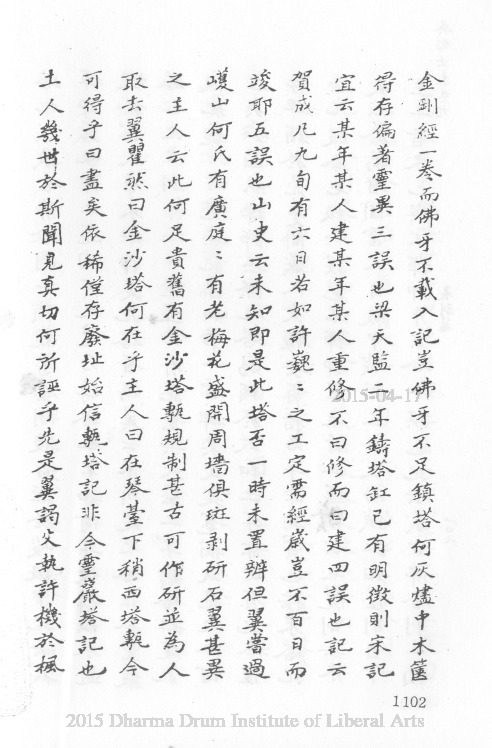 金剛經一卷而佛牙不載入記豈佛牙不足鎮塔何灰燼中木篋
得存偏著靈異三誤也梁天監二年鑄塔缸已有明徵則宋記
宜云某年某人建某年某人重修不曰修而曰建四誤也記云
賀成凡九旬有六日若如許巍〻之工定需經歲豈不百日而
竣耶五誤也山史云未知即是此塔否一時未置辨但翼嘗過
嶁山何氏有廣庭〻有老梅花盛開周墻俱斑剥研石翼甚異
之主人云此何足貴舊有金沙塔甎規制甚古可作研並為人
取去翼瞿然曰金沙塔何在乎主人曰在琴臺下稍西塔甎今
可得乎曰盡矣依稀僅存廢址始信甎塔記非今靈巖塔記也
土人幾世於斯聞見真切何所誣乎先是翼謁父執許機於楓
1102
2015-04-17
2015 Dharma Drum Institute of Liberal Arts